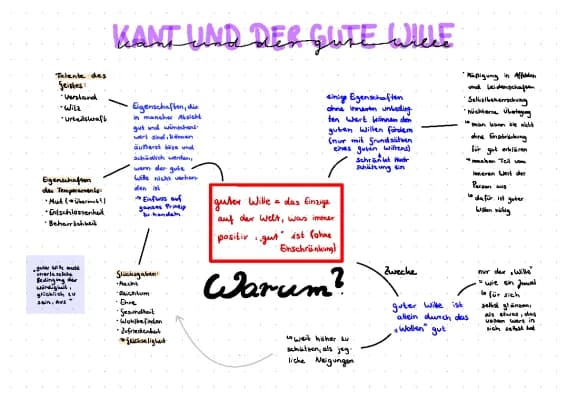 KANT UND DER GUTE WILLE
kant und der gute wille
Talente des
Geistes:
· Verstand
· Witz
· Urteilskraft
Eigenschaften, die
in mancher Absicht
gut und wünschens-
wert sind, können
äußerst böse und
schädlich werden,
wenn der gute
Wille nicht vorhan-
den ist
↳ Einfluss auf
ganzes Prinzip
zu handeln
Eigenschaften
des Temperaments:
· Mut (→ Übermut!)
· Entschlossenheit
· Beharrlichkeit
Glücksgaben:
· Macht
· Reichtum
· Ehre
· Gesundheit
· Wohlbefinden
· Zufriedenheit
→ Glückseligkeit
„guter Wille macht
unerlässliche
Bedingung der
Würdigkeit,
glücklich zu
sein, aus"
einige Eigenschaften
ohne inneren unbeding-
ten Wert können den
guten Willen fördern
(nur mit Grundsätzen
eines guten Willens)
↳ schränkt Hoch-
schätzung ein
· Mäßigung in Affekten
und Leidenschaften
· Selbstbeherrschung
· Nüchterne Überlegung
↳ man kann sie nicht
ohne Einschränkung
für gut erklären
→ machen Teil vom
inneren Wert der
Person aus
↳ dafür ist guter
Wille nötig
guter Wille = das Einzige
auf der Welt, was immer
positiv, „gut" ist (ohne
Einschränkung)
Warum?
Zwecke
guter Wille ist
allein durch das
„Wollen" gut
nur der „Wille"
= wie ein Juwel
↳ für sich
selbst glänzen,
als etwas, das
vollen Wert in
sich selbst hat
↳ weit höher zu
schätzen, als jeg-
liche Neigungen